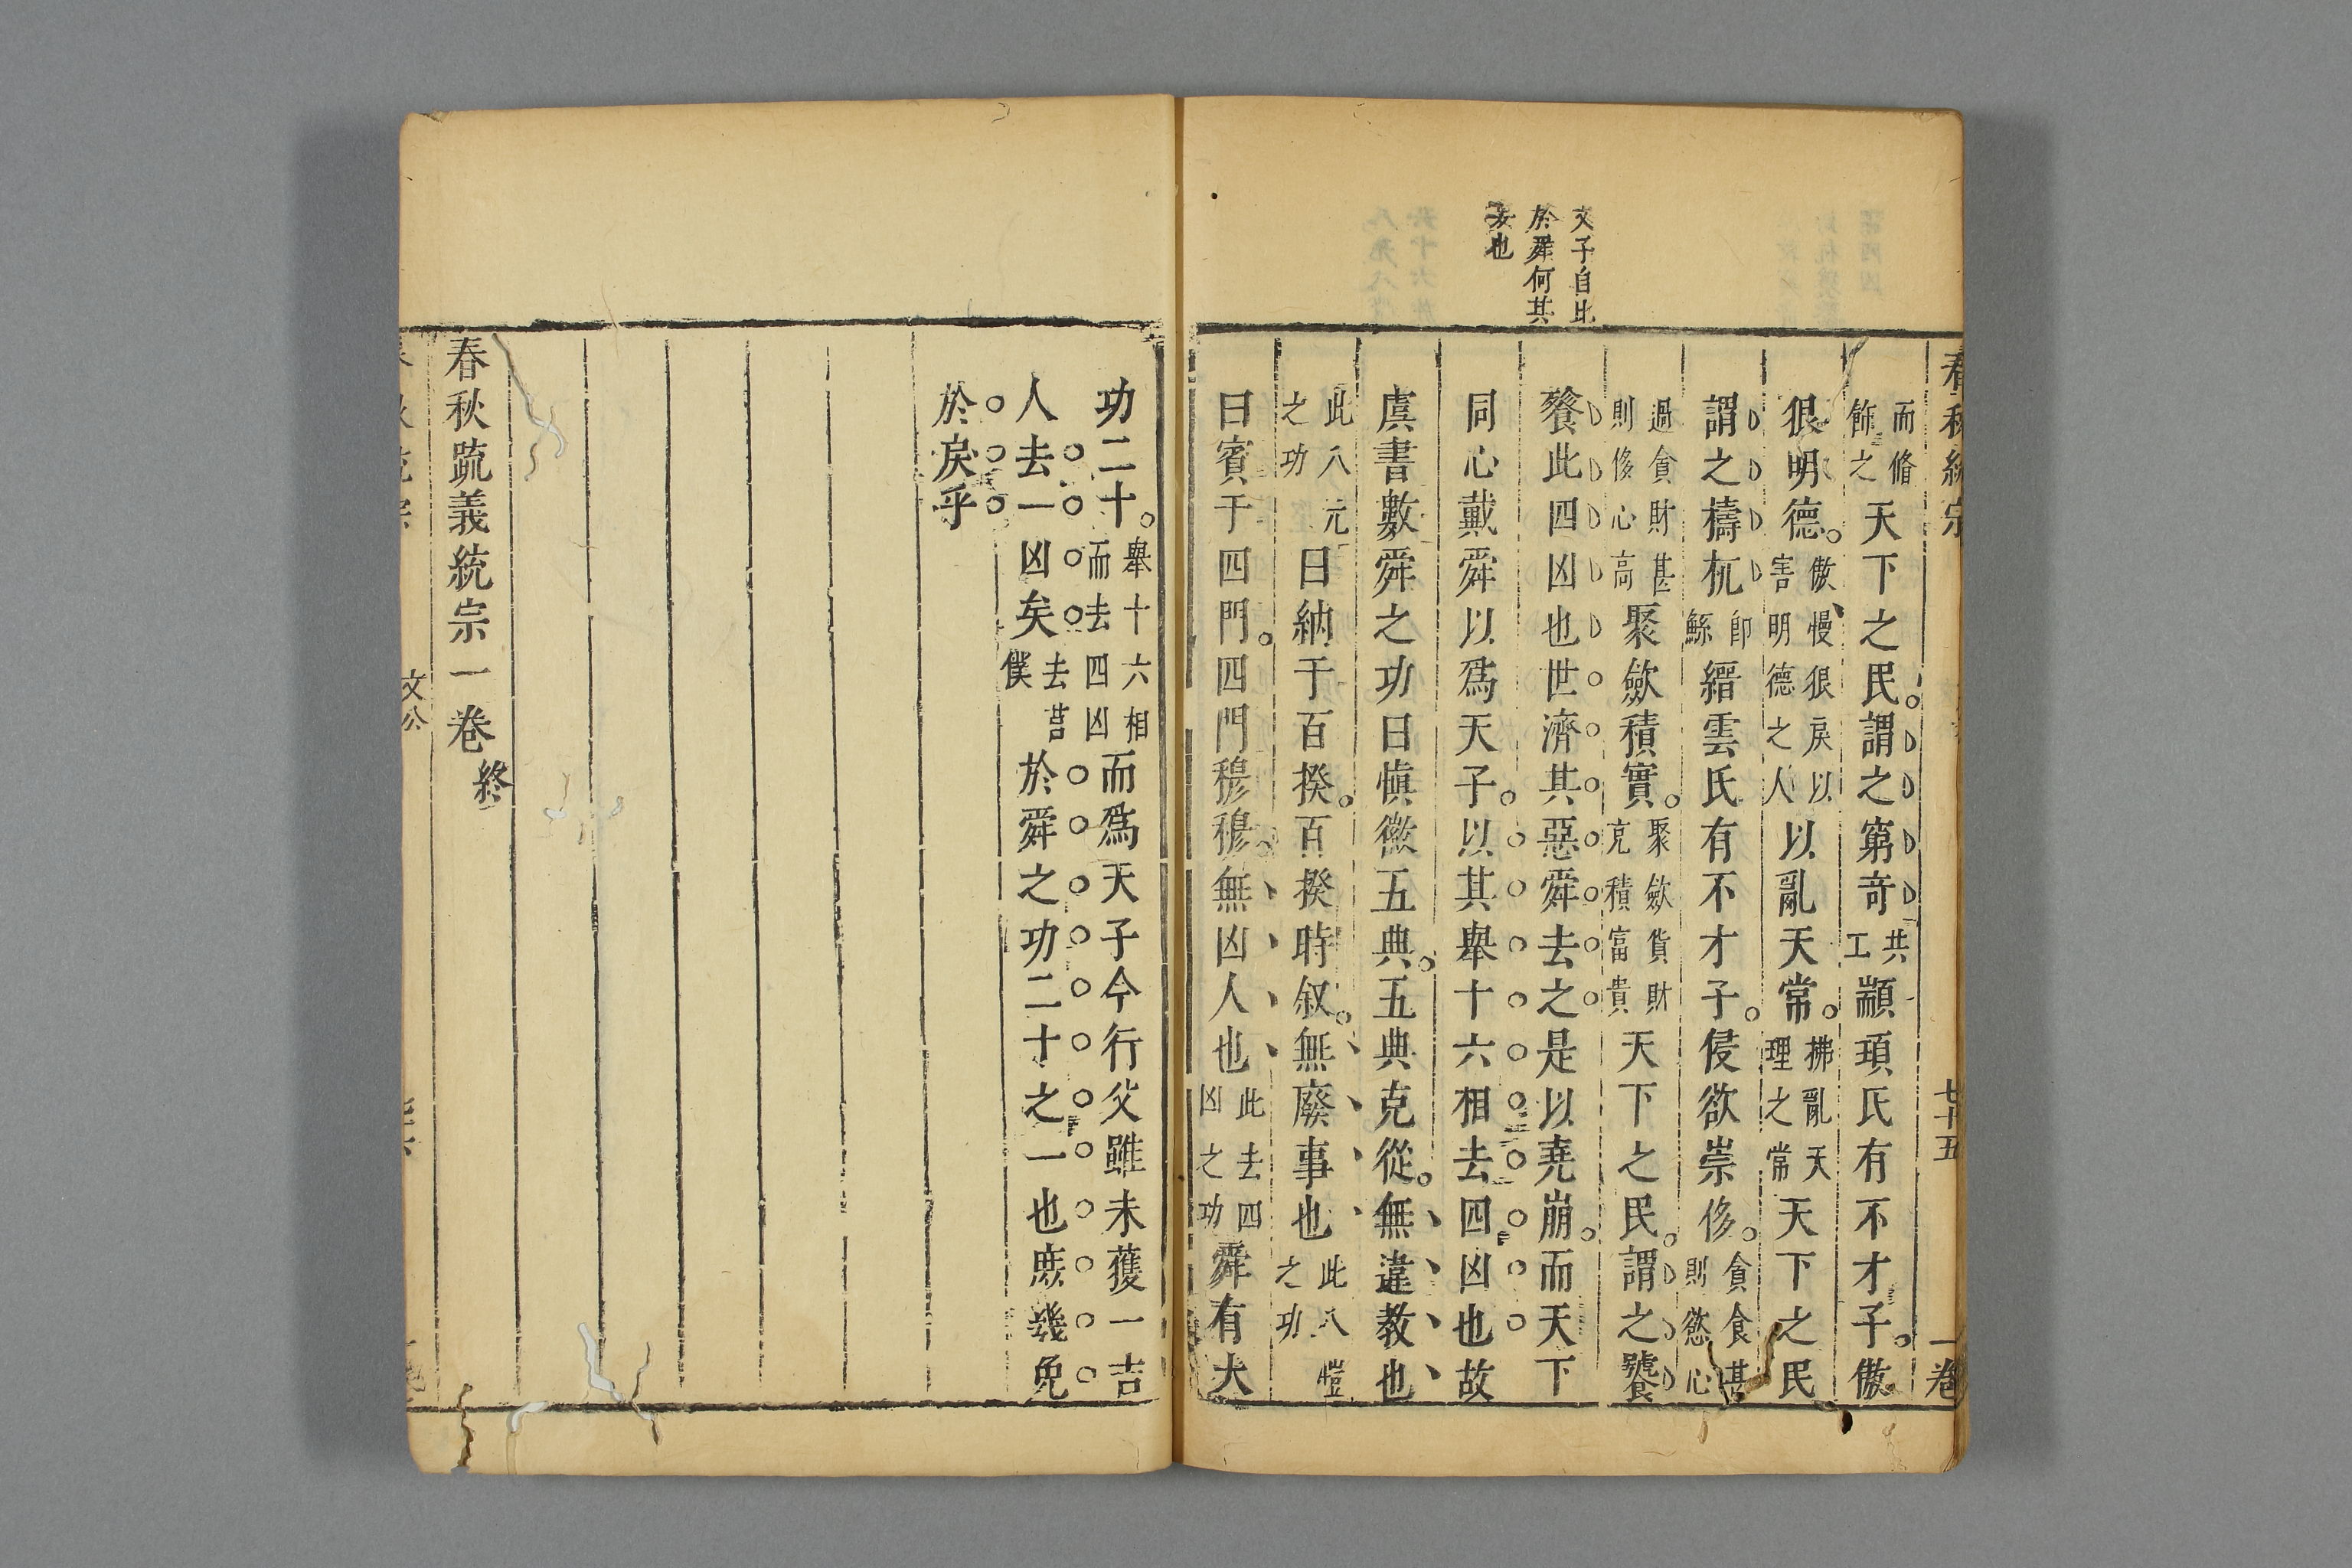 春秋統宗
七十五
一卷
文子自比
於舜何其
妄也
而脩飾之天下之民謂之窮奇共工顓頊氏有不才子傲
狠明德傲慢狠戾以害明德之人以亂天常拂亂天理之常天下之民
謂之檮杌卽鯀縉雲氏有不才子侵欲崇侈貪食甚則慾心
過貪財甚則侈心高聚斂積實聚斂貨財克積富貴天下之民謂之饕
餮此四凶也世濟其惡舜去之是以堯崩而天下
同心戴舜以爲天子以其舉十六相去四凶也故
虞書數舜之功曰慎徽五典五典克從無違教也
此八元之功曰納于百揆百揆時叙無廢事也此八愷之功
曰賓于四門四門穆穆無凶人也此去四凶之功舜有大
功二十舉十六相而去四凶而爲天子今行父雖未獲一吉
人去一凶矣去莒僕於舜之功二十之一也庶幾免
於戾乎
春秋疏義統宗一卷終
文公